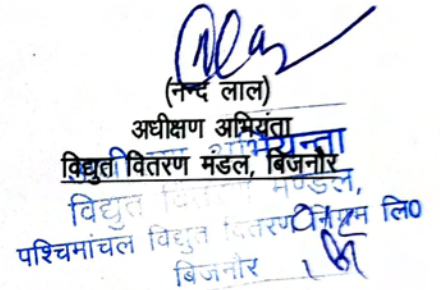 (नन्द लाल)
अधीक्षण अभियंता
विद्युत वितरण मंडल, बिजनौर
अभियन्ता
विद्युत वितरण मण्डल,
पश्चिमांचल विद्युत वितरण निगम लि0
बिजनौर